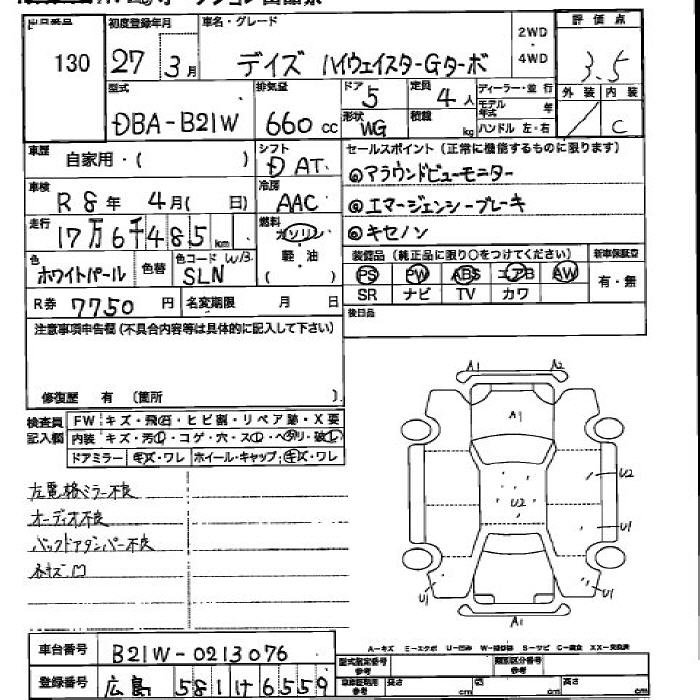 出品番号 初度登録年月 車名・グレード 2WD・4WD 評価点
130 27年3月 デイズ ハイウェイスターGターボ 3.5
型式 排気量 ドア 定員 ディーラー・並行 外装 内装
DBA-B21W 660cc 5 4人 モデル年式 年
形状 WG 積載 kg ハンドル 左・右 C
車歴 自家用・( ) シフト D AT セールスポイント(正常に機能するものに限ります)
車検 R8年 4月( 日) 冷房 AAC ◎アラウンドビューモニター
◎エマージェンシーブレーキ
走行 17万6千485km 燃料 ガソリン 軽油 ( ) ◎キセノン
色 ホワイトパール 色替 色コード W/B SLN 装備品(純正品に限り○をつけてください) 新車保証書
PS PW ABS エアB AW 有・無
SR ナビ TV カワ
R券 7750円 名変期限 月 日 後日品
注意事項申告欄(不具合内容等は具体的に記入して下さい)
修復歴 有 (箇所 )
検査員記入欄 FW キズ・飛石・ヒビ割・リペア跡・X要
内装 キズ・汚レ・コゲ・穴・スレ・ヘタリ・破レ
ドアミラー キズ・ワレ ホイール・キャップ キズ・ワレ
左電格ミラー不良
オーディオ不良
バックドアダンパー不良
キズ凹
A1 A2
A1
U2 U2
U1
U1 U1
A1
A-キズ E-エクボ U-凹み W-補修跡 S-サビ C-腐食 XX-交換済
車台番号 B21W-0213076 型式指定番号 参考 類別区分番号 参考
登録番号 広島 581け6559 長さ cm 幅 cm 高さ cm